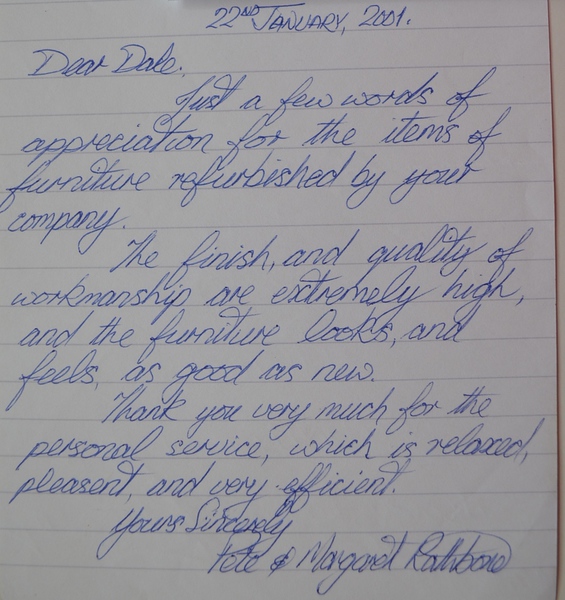 22ND JANUARY, 2001.
Dear Dale,
Just a few words of
appreciation for the items of
furniture refurbished by your
company.
The finish, and quality of
workmanship are extremely high,
and the furniture looks, and
feels, as good as new.
Thank you very much for the
personal service, which is relaxed,
pleasent, and very efficient.
Yours Sincerely
Pete & Margaret Rathbone